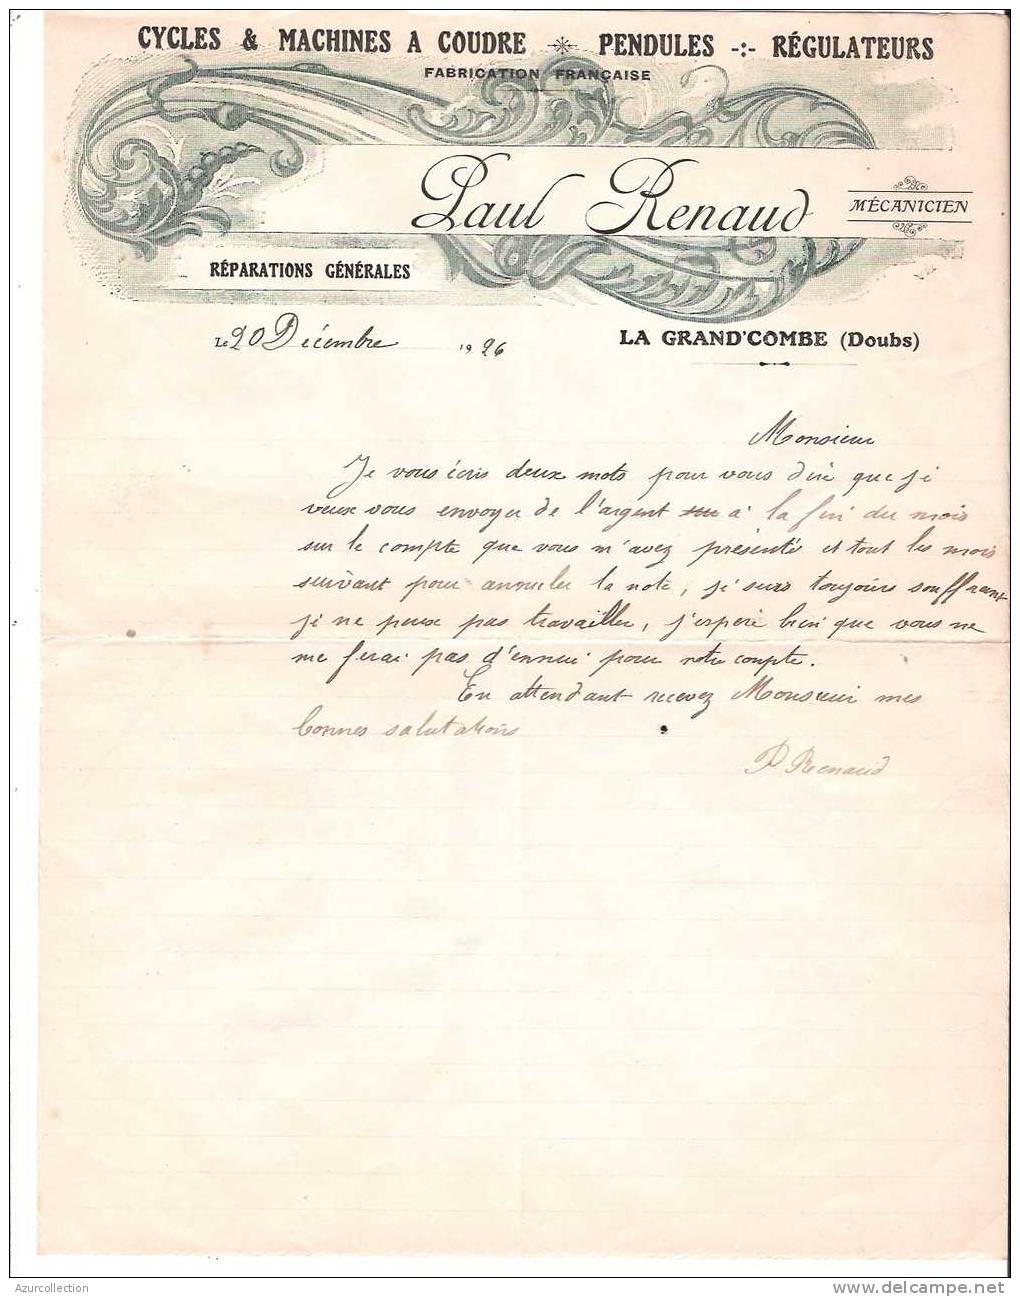 CYCLES & MACHINES A COUDRE PENDULES -:- RÉGULATEURS
FABRICATION FRANÇAISE
Paul Renaud
MÉCANICIEN
RÉPARATIONS GÉNÉRALES
Le 20 Décembre 1926
LA GRAND'COMBE (Doubs)
Monsieur
Je vous écris deux mots pour vous dire que je
veux vous envoyer de l'argent à la fin du mois
sur le compte que vous m'avez présenté et tout les mois
suivant pour annuler la note, je suis toujours souffrant
je ne peux pas travailler, j'espere bien que vous ne
me ferai pas d'ennui pour notre compte.
En attendant recevez Monsieur mes
bonnes salutations
P Renaud
Azurcollection
www.delcampe.net